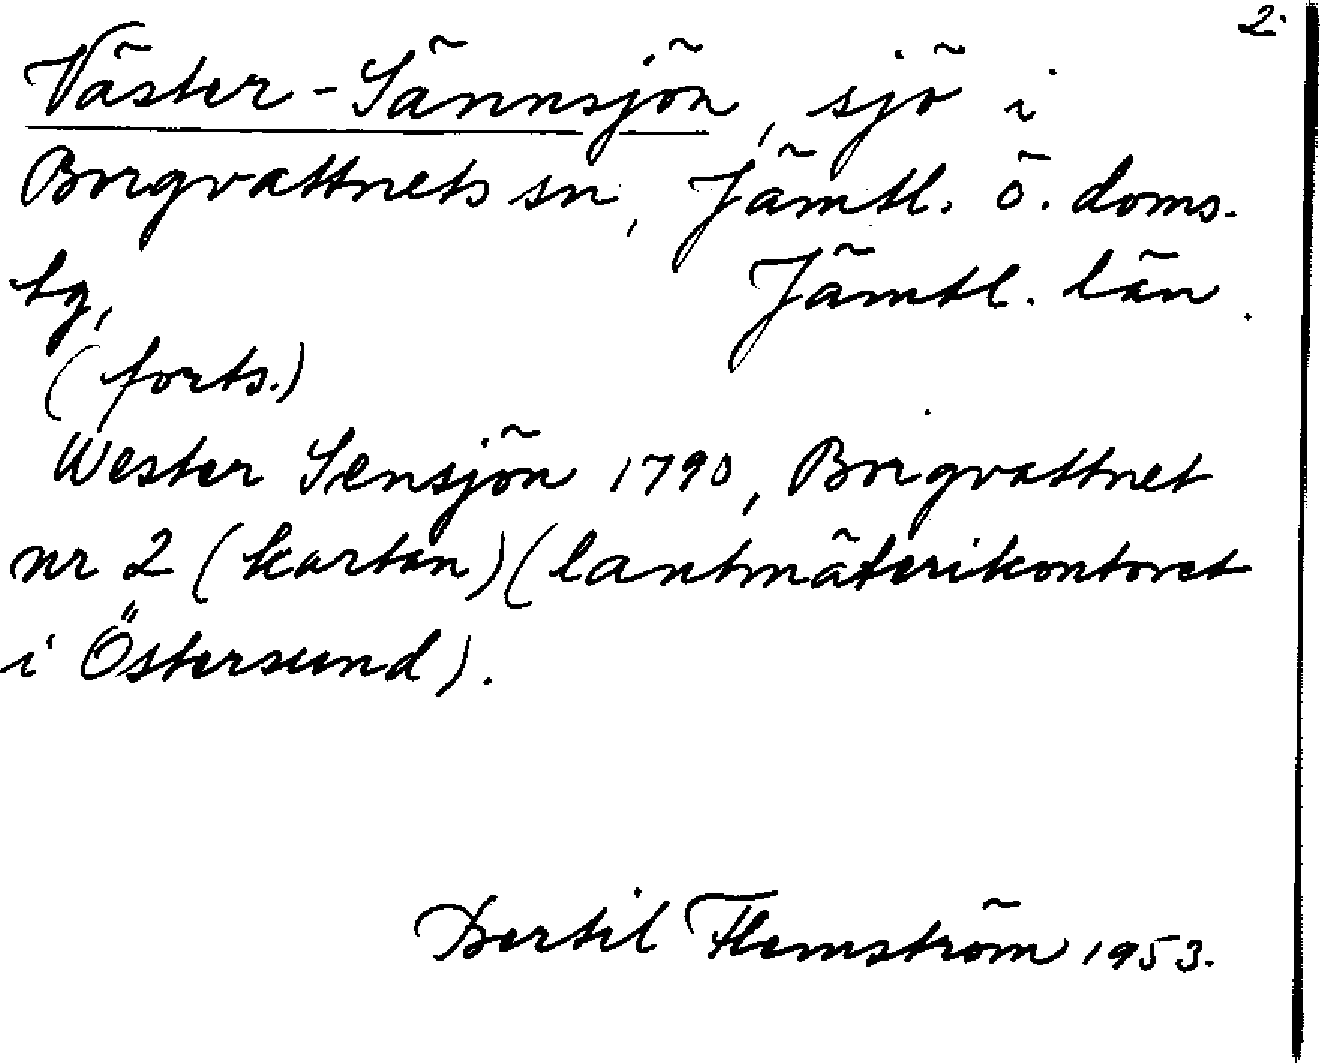 2.
Väster-Sännsjön, sjö i
Borgvattnets sn, Jämtl. ö. doms.
tg, Jämtl. län.
(forts.)
Wester Sensjön 1790, Borgvattnet
nr 2 (kartan) (lantmäterikontoret
i Östersund).
Bertil Flemström 1953.